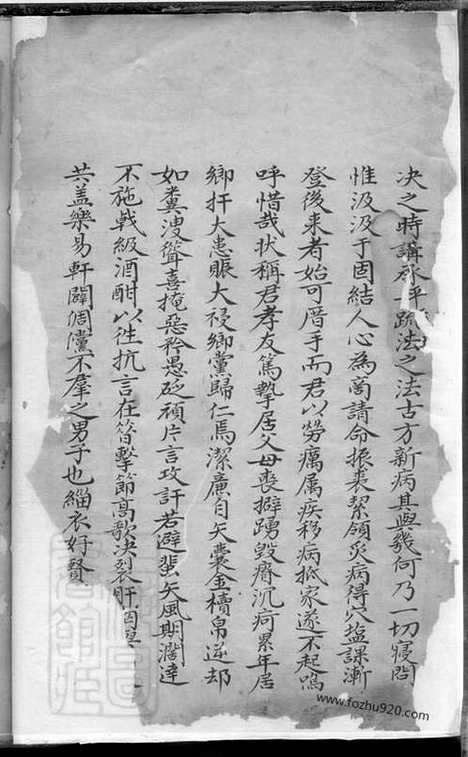 决之時講承平疏法之法古方新病其與幾何乃一切寢閣
惟汲汲于固結人心為蜀請命振裘絜領灸病得穴塩課漸
登後来者始可厝手而君以勞癘属疾移病抵家遂不起嗚
呼惜哉状稱君孝友篤摯居父母喪擗踴毀瘠沉疴累年居
鄉扞大患賑大祲鄉黨歸仁焉潔廉自矢囊金櫝帛逆却
如糞溲聳喜掩惡矜愚砭頑片言攻訐若避蜚矢風期濶達
不施戟級酒酣以徃抗言在昔擊節高歌决裂肝
共盖樂易軒闢倜儻不羣之男子也緇衣好賢
www.fozhu920.com